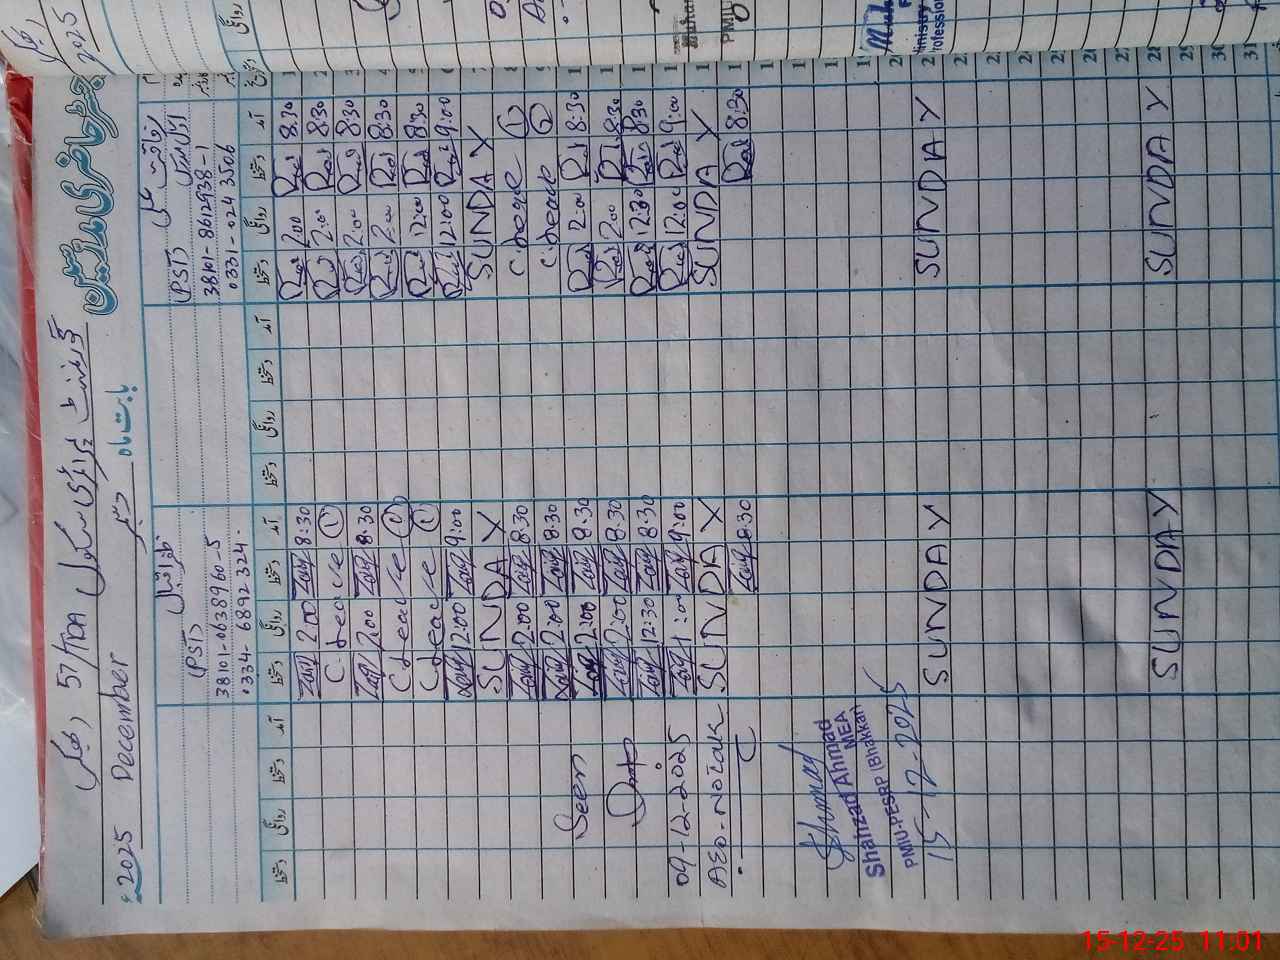 رجسٹر حاضری مدرسین
گورنمنٹ پرائمری سکول 57/TDA (بھکر)
بابت ماہ دسمبر December 2025ء
(PST)
38101-8612938-1
0331-024 3506
(PST)
38101-0638960-5
0334-6892324
آمد دستخط روانگی دستخط آمد دستخط روانگی دستخط آمد دستخط روانگی دستخط آمد دستخط روانگی دستخط
8:30 2:00 8:30 2:00
8:30 2:00 C.leave (1)
8:30 2:00 8:30 2:00
8:30 2:00 C.leave (1)
8:30 12:00 C.leave (1)
9:00 12:00 9:00 12:00
SUNDAY SUNDAY
C.leave (1) 8:30 2:00
C.leave (2) 8:30 2:00
8:30 2:00 8:30 2:00 Seen
8:30 2:00 8:30 2:00
8:30 12:30 8:30 12:30
9:00 12:00 9:00 1:00 09-12-2025
SUNDAY SUNDAY AEO-Notak
8:30 8:30
Shahzad Ahmad
MEA
PMIU-PESRP (Bhakkar)
15-12-2025
20
21 SUNDAY SUNDAY
22
23
24
25
26
27
28 SUNDAY SUNDAY
29
30
31
2025
PMIU
Ministry
Professional
15-12-25 11:01